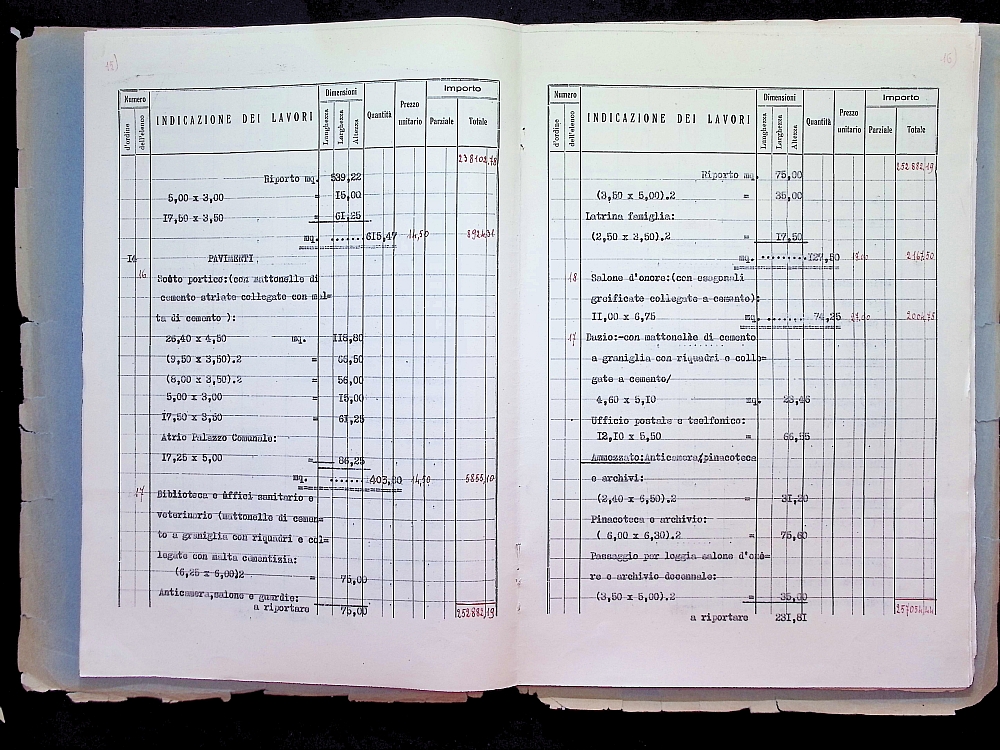 15)
Numero
d'ordine
dell'elenco
INDICAZIONE DEI LAVORI
Dimensioni
Lunghezza
Larghezza
Altezza
Quantità
Prezzo
unitario
Importo
Parziale
Totale
238102,78
Riporto mq. 539,22
5,00 x 3,00 = 15,00
17,50 x 3,50 = 61,25
mq. ....... 615,47 14,50 8924,31
16 PAVIMENTI
16 Sotto portico:(con mattonelle di
cemento striate collegate con mal=
ta di cemento ):
26,40 x 4,50 mq. 118,80
(9,50 x 3,50).2 = 66,50
(8,00 x 3,50).2 = 56,00
5,00 x 3,00 = 15,00
17,50 x 3,50 = 61,25
Atrio Palazzo Comunale:
17,25 x 5,00 = 86,25
mq. ....... 403,80 14,50 5855,10
17 Biblioteca e Uffici sanitario e
veterinario (mattonelle di cemen=
to a graniglia con riquadri e col=
legate con malta cementizia:
(6,25 x 6,00)2 = 75,00
Anticamera,salone e guardie:
a riportare 75,00 252882,19
16)
Numero
d'ordine
dell'elenco
INDICAZIONE DEI LAVORI
Dimensioni
Lunghezza
Larghezza
Altezza
Quantità
Prezzo
unitario
Importo
Parziale
Totale
252882,19
Riporto mq. 75,00
(3,50 x 5,00).2 = 35,00
Latrina famiglia:
(2,50 x 3,50).2 = 17,50
mq. ......... 127,50 17,00 2167,50
18 Salone d'onore:(con esagonali
greificate collegate a cemento):
11,00 x 6,75 mq. ....... 74,25 27,00 2004,75
17 Dazio:-con mattonelle di cemento
a graniglia con riquadri e colle=
gate a cemento/
4,60 x 5,10 mq. 23,46
Ufficio postale e telefonico:
12,10 x 5,50 = 66,55
Ammezzato:Anticamera,pinacoteca
e archivi:
(2,40 x 6,50).2 = 31,20
Pinacoteca e archivio:
( 6,00 x 6,30).2 = 75,60
Passaggio per loggia salone d'ono=
re e archivio decennale:
(3,50 x 5,00).2 = 35,00
a riportare 231,81 257054,44